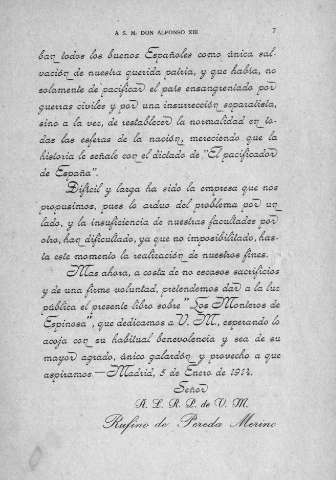 A S. M. DON ALFONSO XIII 7
ban todos los buenos Españoles como única sal-
vación de nuestra querida patria, y que había, no
solamente de pacificar el país ensangrentado por
guerras civiles y por una insurrección separatista,
sino a la vez, de restablecer la normalidad en to-
das las esferas de la nación, mereciendo que la
historia le señale con el dictado de "El pacificador
de España".
Difícil y larga ha sido la empresa que nos
propusimos, pues lo arduo del problema por un
lado, y la insuficiencia de nuestras facultades por
otro, han dificultado, ya que no imposibilitado, has-
ta este momento la realización de nuestros fines.
Mas ahora, a costa de no escasos sacrificios
y de una firme voluntad, pretendemos dar a la luz
pública el presente libro sobre "Los Monteros de
Espinosa", que dedicamos a V. M., esperando lo
acoja con su habitual benevolencia y sea de su
mayor agrado, único galardón y provecho a que
aspiramos.—Madrid, 5 de Enero de 1914.
Señor
A. L. R. P. de V. M.
Rufino de Pereda Merino